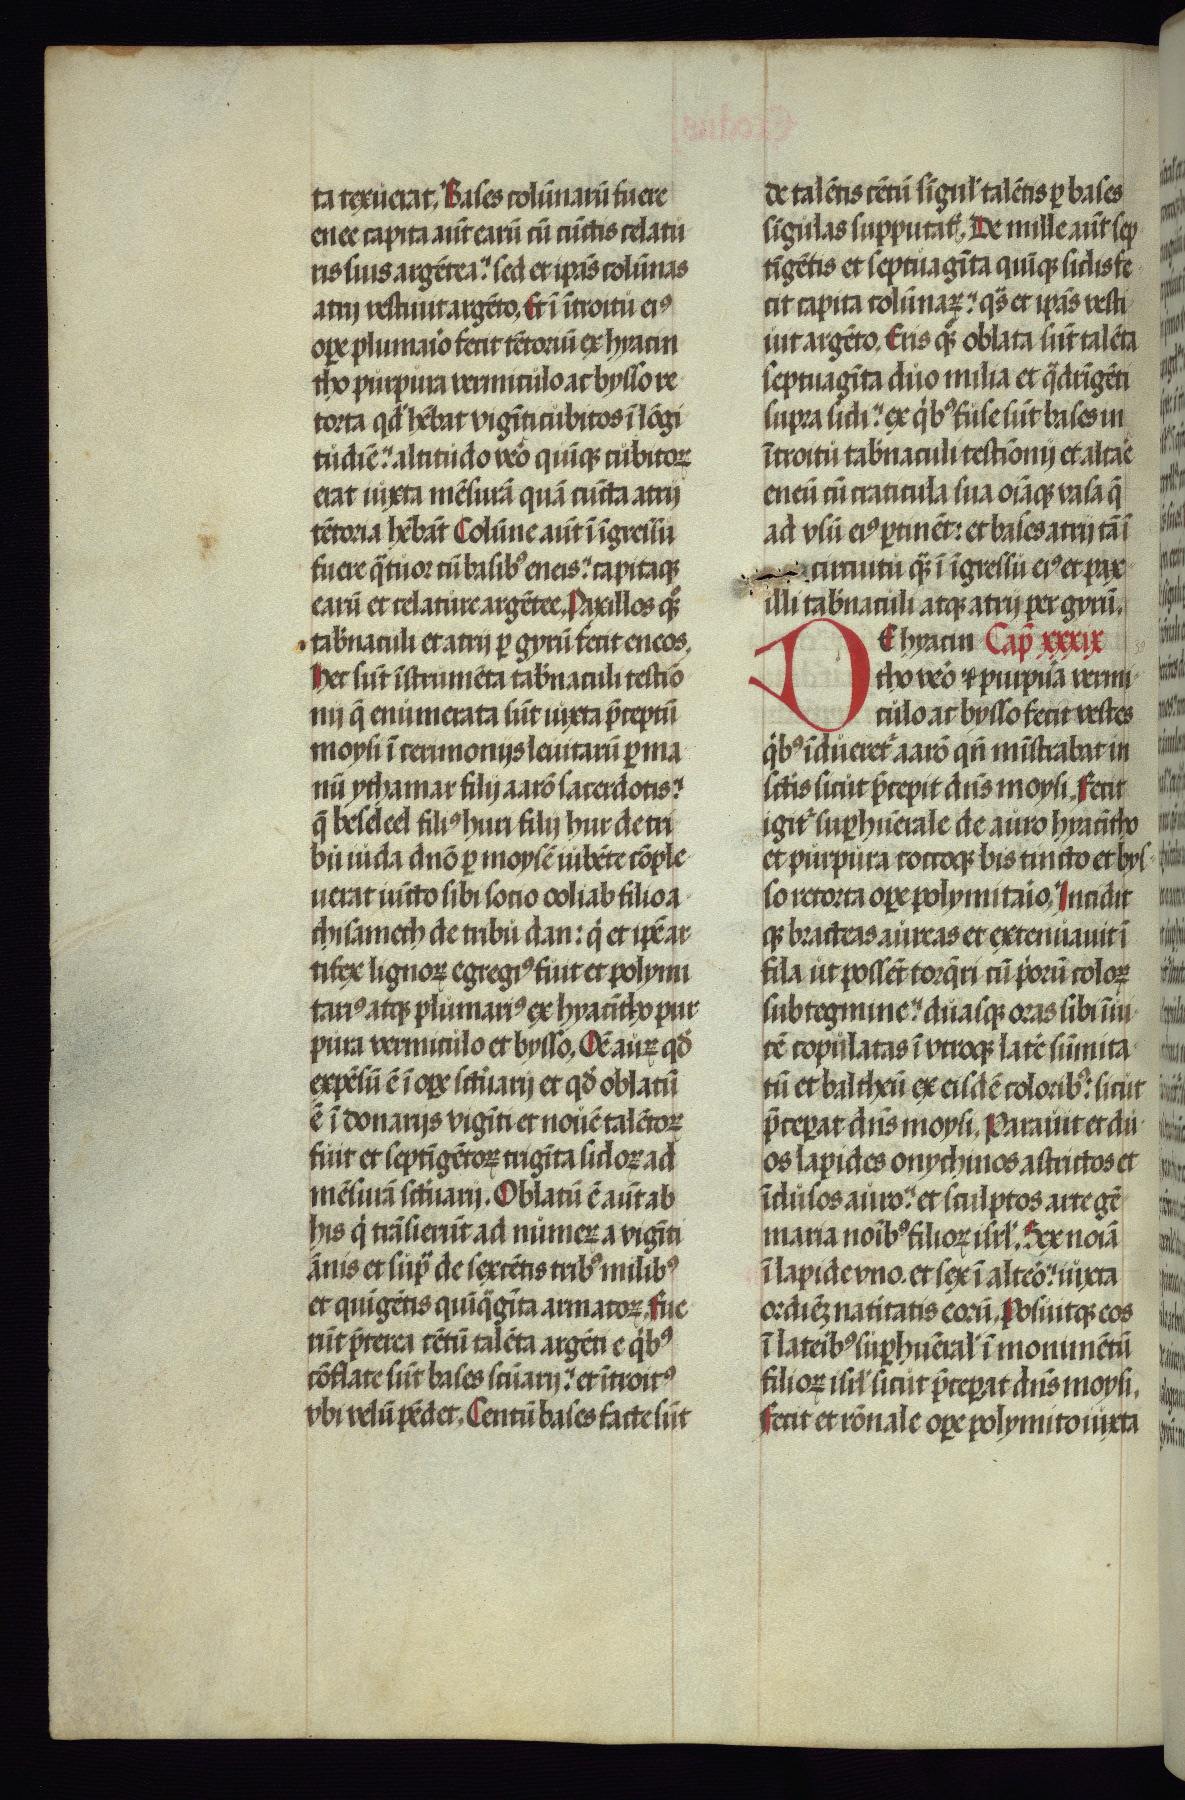 ta texuerat. Bases colūnarū fuere
enee capita aūt earū cū cūctis celatu
ris suis argētea: sed et ipās colūnas
atrij vestiuit argēto. Et ī ītroitu eiꝰ
oꝑe plumaͥo fecit tētoriū ex hyacin
tho purpura vermiculo ac bysso re
torta qd' hēbat vigīti cubitos ī lōgi
tudiē: altitudo veͦo quīqꝫ cubitoꝝ
erat iuxta mēsurā quā cūcta atrij
tētoria hēbāt Colūne aūt ī īgressu
fuere qͣtuor cū basibꝰ eneis: capitaqꝫ
earū et celature argētee. Paxillos qͦꝫ
tab'naculi et atrij ꝑ gyrū fecit eneos.
Hec sūt īstrumēta tab'naculi testiō
nij q̄ enumerata sūt iuxta p̄ceptū
moysi ī cerimonijs leuitarū ꝑ ma
nū ythamar filij aarō sacerdotis:
q̄ beseleel filiꝰ huri filij hur de tri
bu iuda dn̄o ꝑ moysē iubēte cōple
uerat iūcto sibi socio ooliab filio a
chisamech de tribu dan: qͥ et ip̄e ar
tifex lignoꝝ egregiꝰ fuit et polymi
tariꝰ atqꝫ plumariꝰ ex hyacītho pur
pura vermiculo et bysso. Oē auꝝ qd'
expēsū ē ī oꝑe sctuarij et qd' oblatū
ē ī donarijs vigīti et nouē talētoꝝ
fuit et septīgētoꝝ trigīta sicloꝝ ad
mēsurā sctuarij. Oblatū ē aūt ab
his qͥ trāsierūt ad numeꝝ a vigīti
ānis et supͣ de sexcētis tribꝰ milibꝰ
et quīgētis quīqͣgīta armatoꝝ. Fue
rūt p̄terea cētū talēta argēti e qͥbꝰ
cōflate sūt bases sctuarij: et ītroitꝰ
vbi velū pēdet. Centū bases facte sūt
de talētis cētū sīgul' talētis ꝑ bases
sīgulas supputat'. De mille aūt sep
tīgētis et septuagīta quīqꝫ siclis fe
cit capita colūnaꝝ: qͣs et ipās vesti
uit argēto. Eris qͦꝫ oblata sūt talēta
septuagīta duo milia et qͣdrīgēti
supra sicli: ex qͥbꝰ fuse sūt bases in
ītroitu tab'naculi testiōnij et altaͤ
eneū cū craticula sua oīaqꝫ vasa q̄
ad vsū eiꝰ ꝑtinēt: et bases atrij tā ī
circuitu qͣꝫ ī īgressu eiꝰ et pax
illi tab'naculi atqꝫ atrij per gyrū.
DE hyacin Cap̄ xxxix
tho veͦo et purpuͣa vermi
culo ac bysso fecit vestes
qͥbꝰ īdueret' aarō qn̄ mīstrabat in
sctis sicut p̄cepit dn̄s moysi. Fecit
igit' suꝑhuērale de auro hyacītho
et purpura coccoqꝫ bis tincto et bys
so retorta oꝑe polymitaͥo. Incidit
qꝫ bracteas aureas et extenuauit ī
fila ut possēt torq̄ri cū pͥorū coloꝝ
subtegmine: duasqꝫ oras sibi īui
cē copulatas ī vtroqꝫ late sūmita
tū et baltheū ex eisdē coloribꝰ: sicut
p̄ceperat dn̄s moysi. Parauit et du
os lapides onychinos astrictos et
īclusos auro: et sculptos arte gē
maria noībꝰ filioꝝ isrl'. Sex noīa
ī lapide vno. et sex ī alteͦo: iuxta
ordiēꝫ natitatis eorū. Posuitqꝫ eos
ī lateībꝰ suꝑhuēral' ī monumētū
filioꝝ isrl' sicut p̄ceperat dn̄s moysi.
Fecit et rōnale oꝑe polymito iuxta